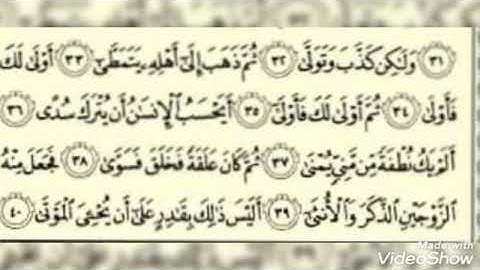 ٣١ وَلَٰكِن كَذَّبَ وَتَوَلَّىٰ ٣٢ ثُمَّ ذَهَبَ إِلَىٰ أَهْلِهِ يَتَمَطَّىٰ ٣٣ أَوْلَىٰ لَكَ
فَأَوْلَىٰ ٣٤ ثُمَّ أَوْلَىٰ لَكَ فَأَوْلَىٰ ٣٥ أَيَحْسَبُ الْإِنسَانُ أَن يُتْرَكَ سُدًى ٣٦
أَلَمْ يَكُ نُطْفَةً مِّن مَّنِيٍّ يُمْنَىٰ ٣٧ ثُمَّ كَانَ عَلَقَةً فَخَلَقَ فَسَوَّىٰ ٣٨ فَجَعَلَ مِنْهُ
الزَّوْجَيْنِ الذَّكَرَ وَالْأُنثَىٰ ٣٩ أَلَيْسَ ذَٰلِكَ بِقَادِرٍ عَلَىٰ أَن يُحْيِيَ الْمَوْتَىٰ ٤٠
Made with
VideoShow